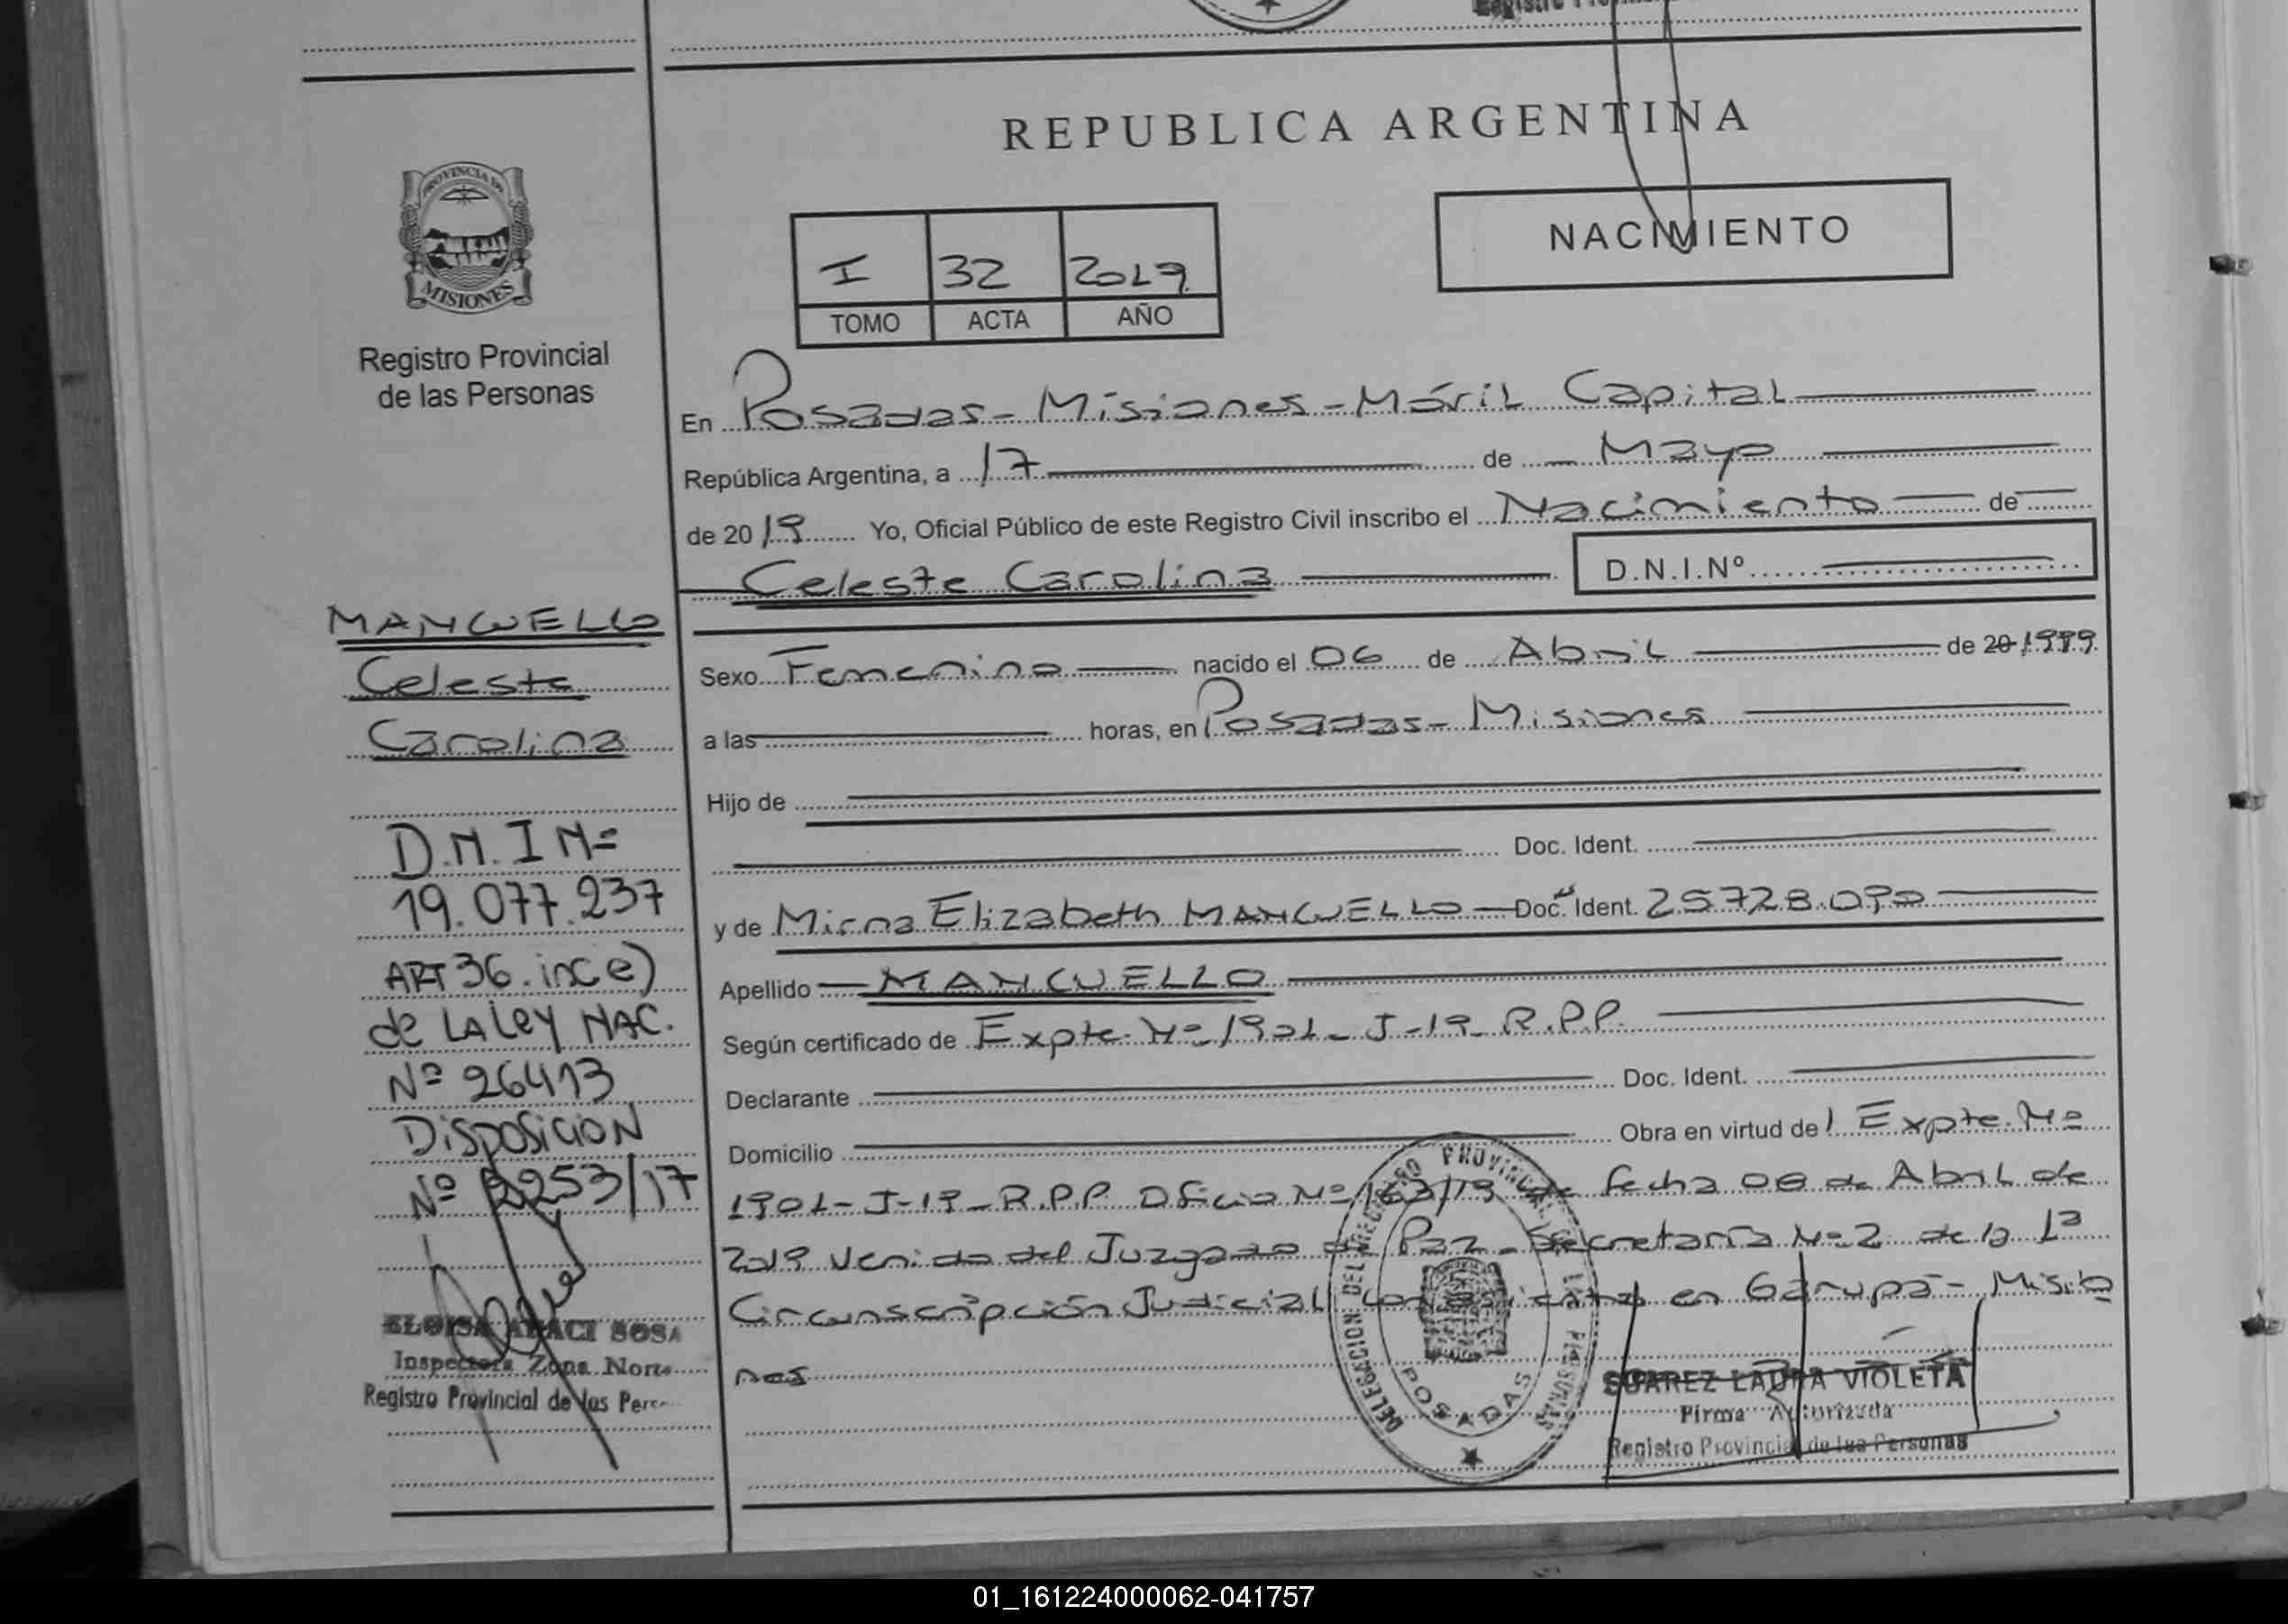 Registro Prov
REPUBLICA ARGENTINA
NACIMIENTO
I 32 2019
TOMO ACTA AÑO
PROVINCIA DE
MISIONES
Registro Provincial
de las Personas
En Posadas - Misiones - Móvil Capital
República Argentina, a 17 de Mayo
de 2019 Yo, Oficial Público de este Registro Civil inscribo el Nacimiento de
Celeste Carolina D.N.I.Nº
MANCUELLO
Celeste
Carolina
D.N.I Nº
19.077.237
ART 36. inc e)
de LA Ley NAC.
Nº 26413
Disposición
Nº 2253/17
ELOISA ARACI SOSA
Inspectora Zona Norte
Registro Provincial de las Pers
Sexo Femenino nacido el 06 de Abril de 20 1999
a las horas, en Posadas - Misiones
Hijo de
Doc. Ident.
y de Mirna Elizabeth MANCUELLO Doc. Ident. 25728.090
Apellido MANCUELLO
Según certificado de Expte. Nº 1901 - J - 19 - R.P.P.
Declarante Doc. Ident.
Domicilio Obra en virtud de Expte. Nº
1901 - J - 19 - R.P.P. Oficio Nº 163/19 de fecha 08 de Abril de
2019 venido del Juzgado de Paz - Secretaría Nº 2 de la 1ª
Circunscripción Judicial con asiento en Garupá - Misio
nes
DELEGACION DEL REGISTRO PROVINCIAL DE LAS PERSONAS
POSADAS
SUAREZ LAURA VIOLETA
Firma Autorizada
Registro Provincial de las Personas
01_161224000062-041757